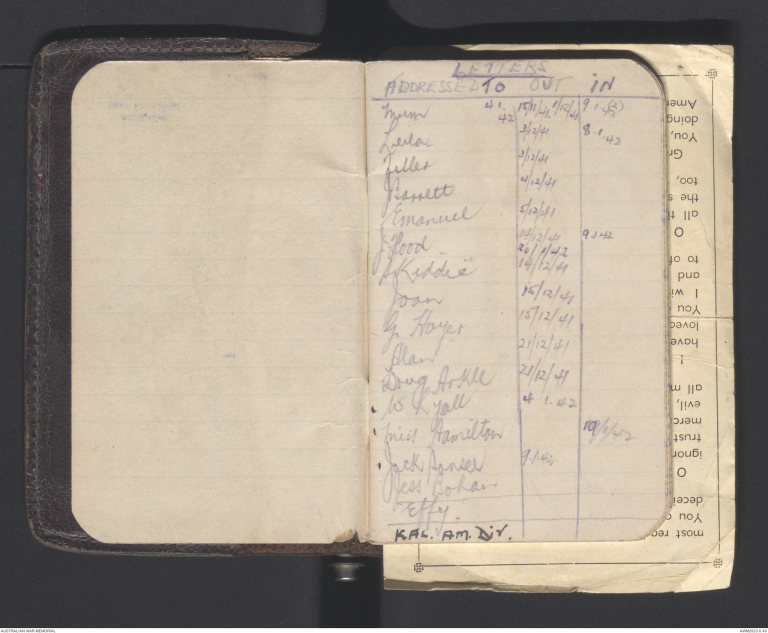 LETTERS
ADDRESSED TO OUT IN
Mum 4.1.42 15/11/41 1/12/41 9.1.42
Leila 3/12/41 8.1.42
Fuller 3/12/41
Barrett 4/12/41
Emanuel 5/12/41
J Hood 14/12/41 9.1.42
20/1/42
Kiddie 14/12/41
Joan 15/12/41
G. Hayes 15/12/41
Alan 21/12/41
Doug Arkle 21/12/41
W Ryall 4.1.42
Miss Hamilton 19/1/42
Jack 9.1.42
Bess Bohan
Effy.
KAL. AM. Div.
Amer
doing
You,
Gr
too,
the s
all th
O
to of
and
I wi
You
loved
have
I
all m
evil,
merc
trust
ignor
O
decei
You
most reg
AUSTRALIAN WAR MEMORIAL